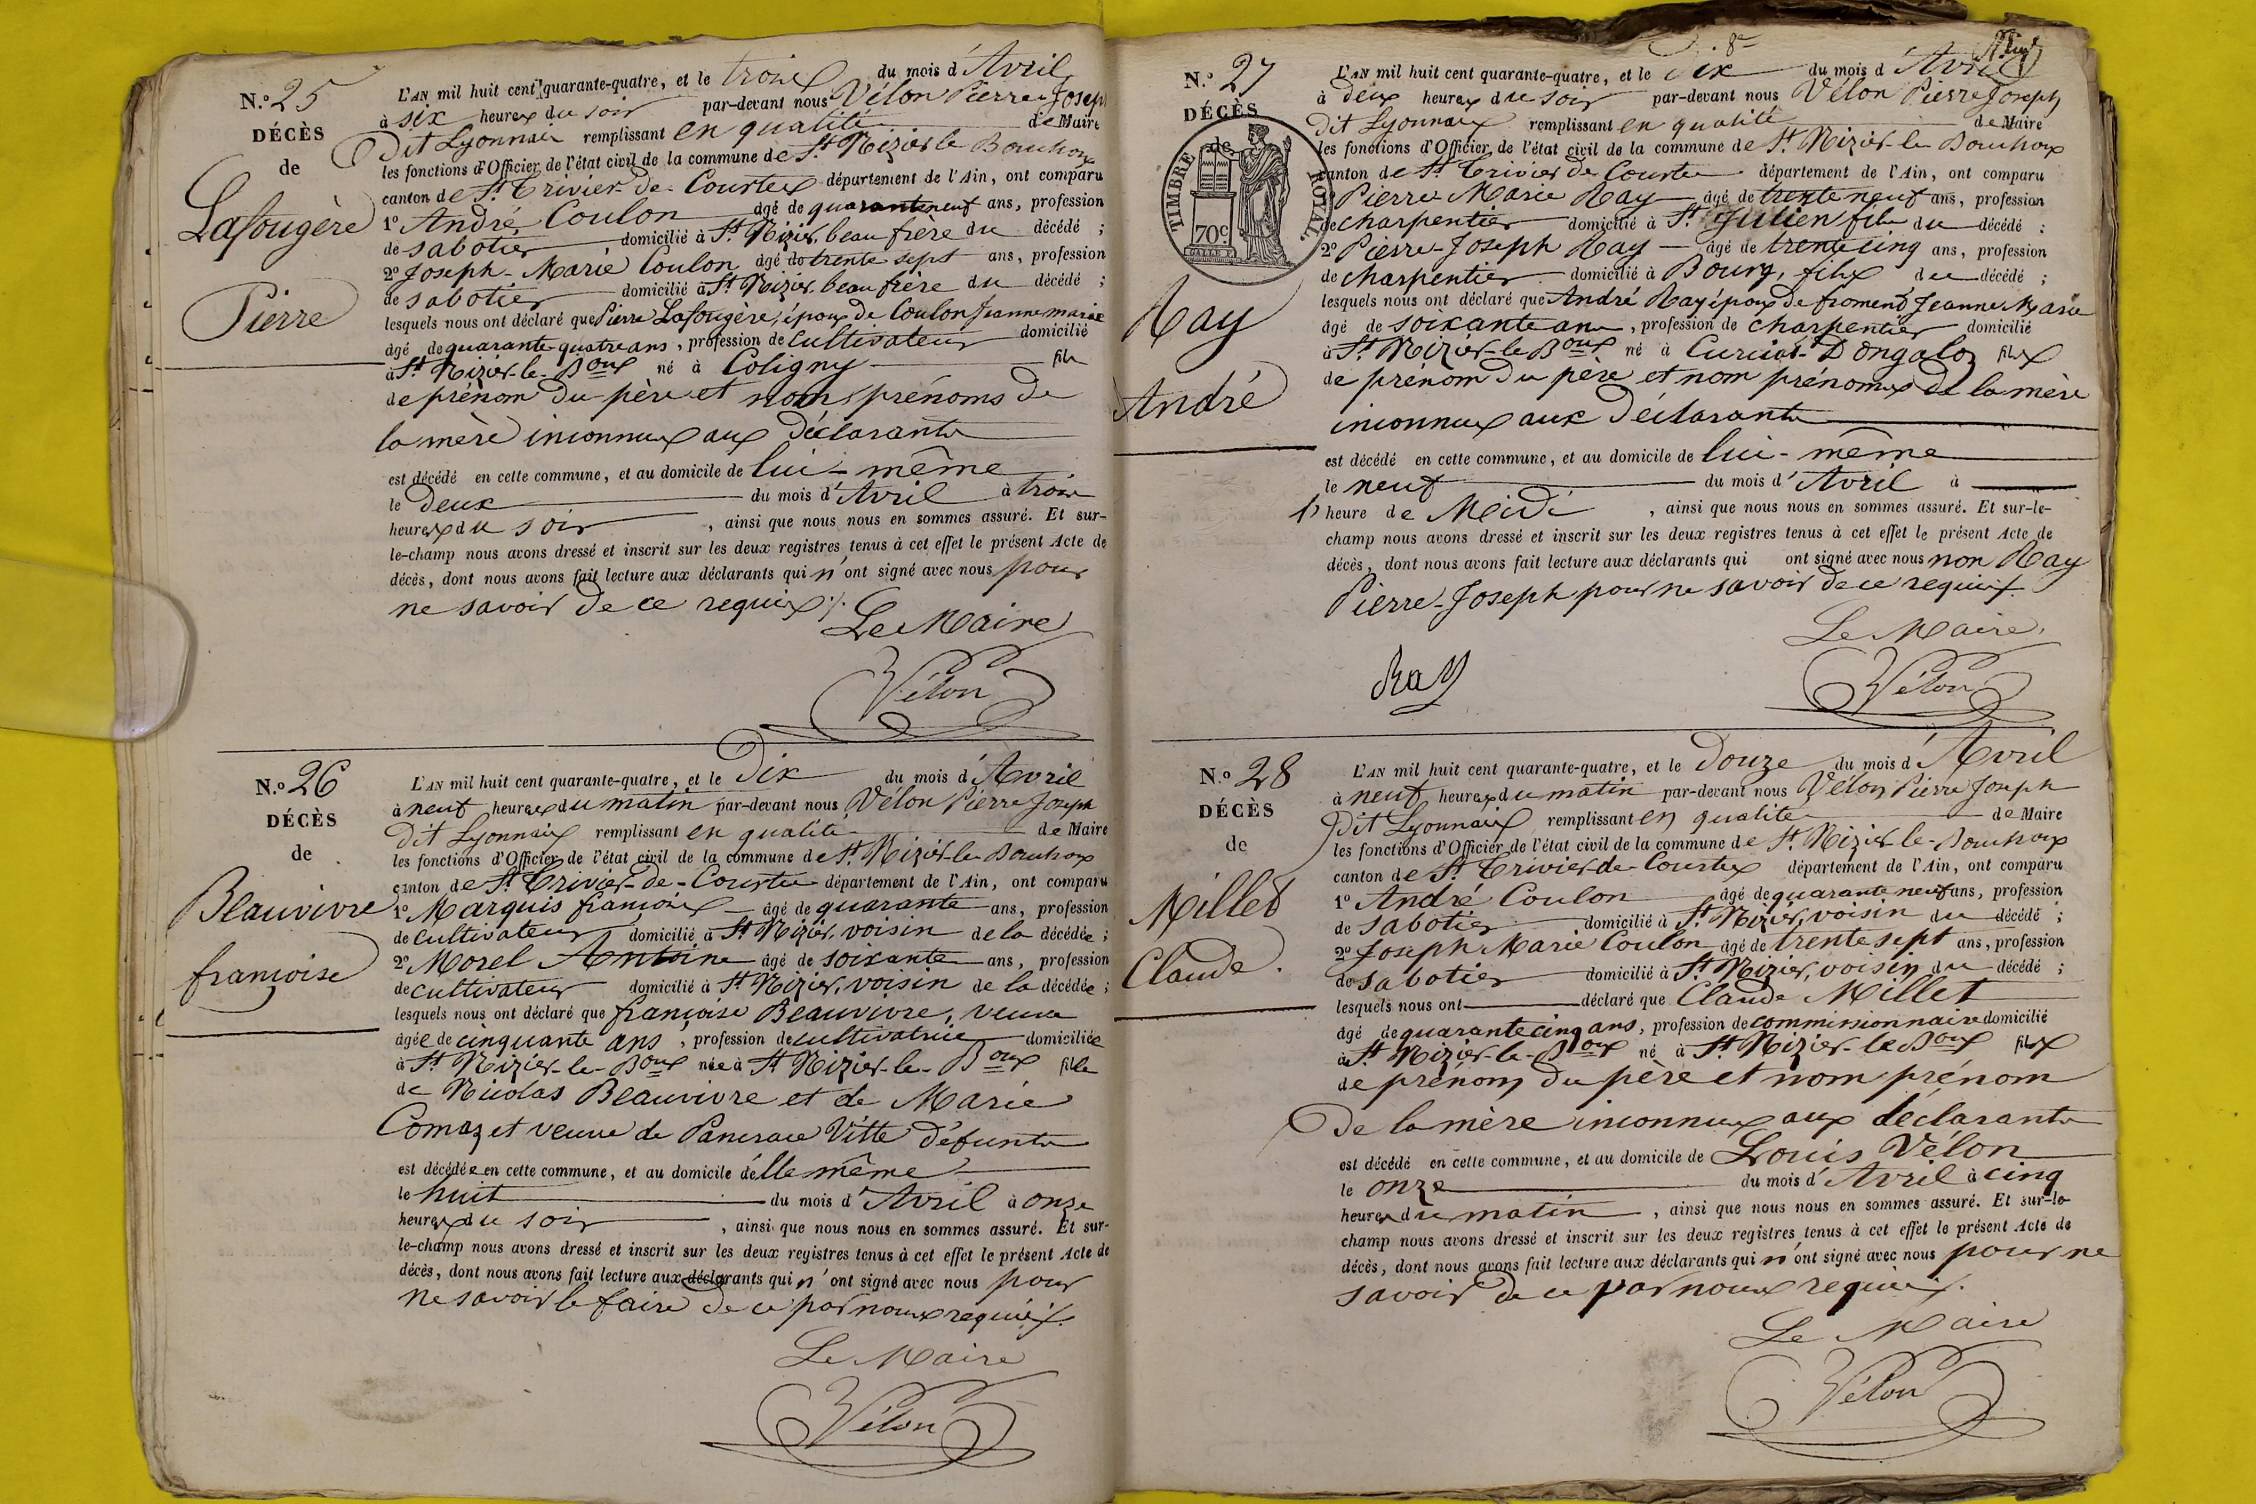 N.º 25
DÉCÈS
de
Lafougère
Pierre
L'AN mil huit cent quarante-quatre, et le trois du mois d'Avril
à six heures du soir par-devant nous Vélon Pierre Joseph
Dit Lyonnais remplissant en qualité de Maire
les fonctions d'Officier de l'état civil de la commune de St. Nizier le Bouchoux
canton de St. Trivier-de-Courtes département de l'Ain, ont comparu
1º André Coulon âgé de quarante neuf ans, profession
de sabotier, domicilié à St. Nizier, beau frère du décédé ;
2º Joseph-Marie Coulon âgé de trente sept ans, profession
de sabotier domicilié à St. Nizier, beau frère du décédé ;
lesquels nous ont déclaré que Pierre Lafougère, époux de Coulon Jeanne marie
âgé de quarante quatre ans, profession de cultivateur domicilié
à St. Nizier-le-Boux né à Coligny fils
de prénom du père et nom prénoms de
la mère inconnus aux déclarants
est décédé en cette commune, et au domicile de lui-même
le deux du mois d'Avril à trois
heures du soir, ainsi que nous nous en sommes assuré. Et sur-
le-champ nous avons dressé et inscrit sur les deux registres tenus à cet effet le présent Acte de
décès, dont nous avons fait lecture aux déclarants qui n'ont signé avec nous pour
ne savoir de ce requis ./.
Le Maire
Vélon
N.º 26
DÉCÈS
de
Beauvivre
françoise
L'AN mil huit cent quarante-quatre, et le Dix du mois d'Avril
à neuf heures du matin par-devant nous Vélon Pierre Joseph
Dit Lyonnais remplissant en qualité de Maire
les fonctions d'Officier de l'état civil de la commune de St. Nizier-le-Bouchoux
canton de St. Trivier-de-Courtes département de l'Ain, ont comparu
1º Marquis françois âgé de quarante ans, profession
de cultivateur domicilié à St. Nizier, voisin de la décédée ;
2º Morel Antoine âgé de soixante ans, profession
de cultivateur domicilié à St. Nizier, voisin de la décédée ;
lesquels nous ont déclaré que françoise Beauvivre, veuve
âgée de cinquante ans, profession de cultivatrice domiciliée
à St. Nizier-le-Boux née à St Nizier-le-Boux fille
de Nicolas Beauvivre et de Marie
Comaz et veuve de Pancrace Vitte défunts
est décédée en cette commune, et au domicile d'elle même
le huit du mois d'Avril à onze
heures du soir, ainsi que nous nous en sommes assuré. Et sur-
le-champ nous avons dressé et inscrit sur les deux registres tenus à cet effet le présent Acte de
décès, dont nous avons fait lecture aux déclarants qui n'ont signé avec nous pour
ne savoir le faire de ce par nous requis ./.
Le Maire
Vélon
8e
N.º 27
DÉCÈS
de
TIMBRE ROYAL
70c
Ray
André
L'AN mil huit cent quarante-quatre, et le dix du mois d'Avril
à deux heures du soir par-devant nous Vélon Pierre Joseph
Dit Lyonnais remplissant en qualité de Maire
les fonctions d'Officier de l'état civil de la commune de St. Nizier-le-Bouchoux
canton de St. Trivier de Courtes département de l'Ain, ont comparu
Pierre Marie Ray âgé de trente neuf ans, profession
de charpentier domicilié à St. Julien fils du décédé ;
2º Pierre-Joseph Ray âgé de trente cinq ans, profession
de charpentier domicilié à Bourg, fils du décédé ;
lesquels nous ont déclaré que André Ray époux de froment Jeanne Marie
âgé de soixante ans, profession de charpentier domicilié
à St. Nizier-le-Boux né à Curciat-Dongalon fils
de prénom du père et nom prénoms de la mère
inconnus aux déclarants
est décédé en cette commune, et au domicile de lui-même
le neuf du mois d'Avril à
heure de Midi, ainsi que nous nous en sommes assuré. Et sur-le-
champ nous avons dressé et inscrit sur les deux registres tenus à cet effet le présent Acte de
décès, dont nous avons fait lecture aux déclarants qui ont signé avec nous non Ray
Pierre-Joseph pour ne savoir de ce requis.
Le Maire,
Ray
Vélon
N.º 28
DÉCÈS
de
Millet
Claude.
L'AN mil huit cent quarante-quatre, et le Douze du mois d'Avril
à neuf heures du matin par-devant nous Vélon Pierre Joseph
Dit Lyonnais remplissant en qualité de Maire
les fonctions d'Officier de l'état civil de la commune de St. Nizier-le-Bouchoux
canton de St. Trivier de-Courtes département de l'Ain, ont comparu
1º André Coulon âgé de quarante neuf ans, profession
de sabotier domicilié à St. Nizier, voisin du décédé ;
2º Joseph Marie Coulon âgé de trente sept ans, profession
de sabotier domicilié à St. Nizier, voisin du décédé ;
lesquels nous ont déclaré que Claude Millet
âgé de quarante cinq ans, profession de commissionnaire domicilié
à St. Nizier-le-Boux né à St. Nizier-le-Boux fils
de prénom du père et nom prénom
de la mère inconnus aux déclarants
est décédé en cette commune, et au domicile de Louis Vélon
le onze du mois d'Avril à cinq
heures du matin, ainsi que nous nous en sommes assuré. Et sur-le-
champ nous avons dressé et inscrit sur les deux registres tenus à cet effet le présent Acte de
décès, dont nous avons fait lecture aux déclarants qui n'ont signé avec nous pour ne
savoir de ce par nous requis.
Le Maire
Vélon